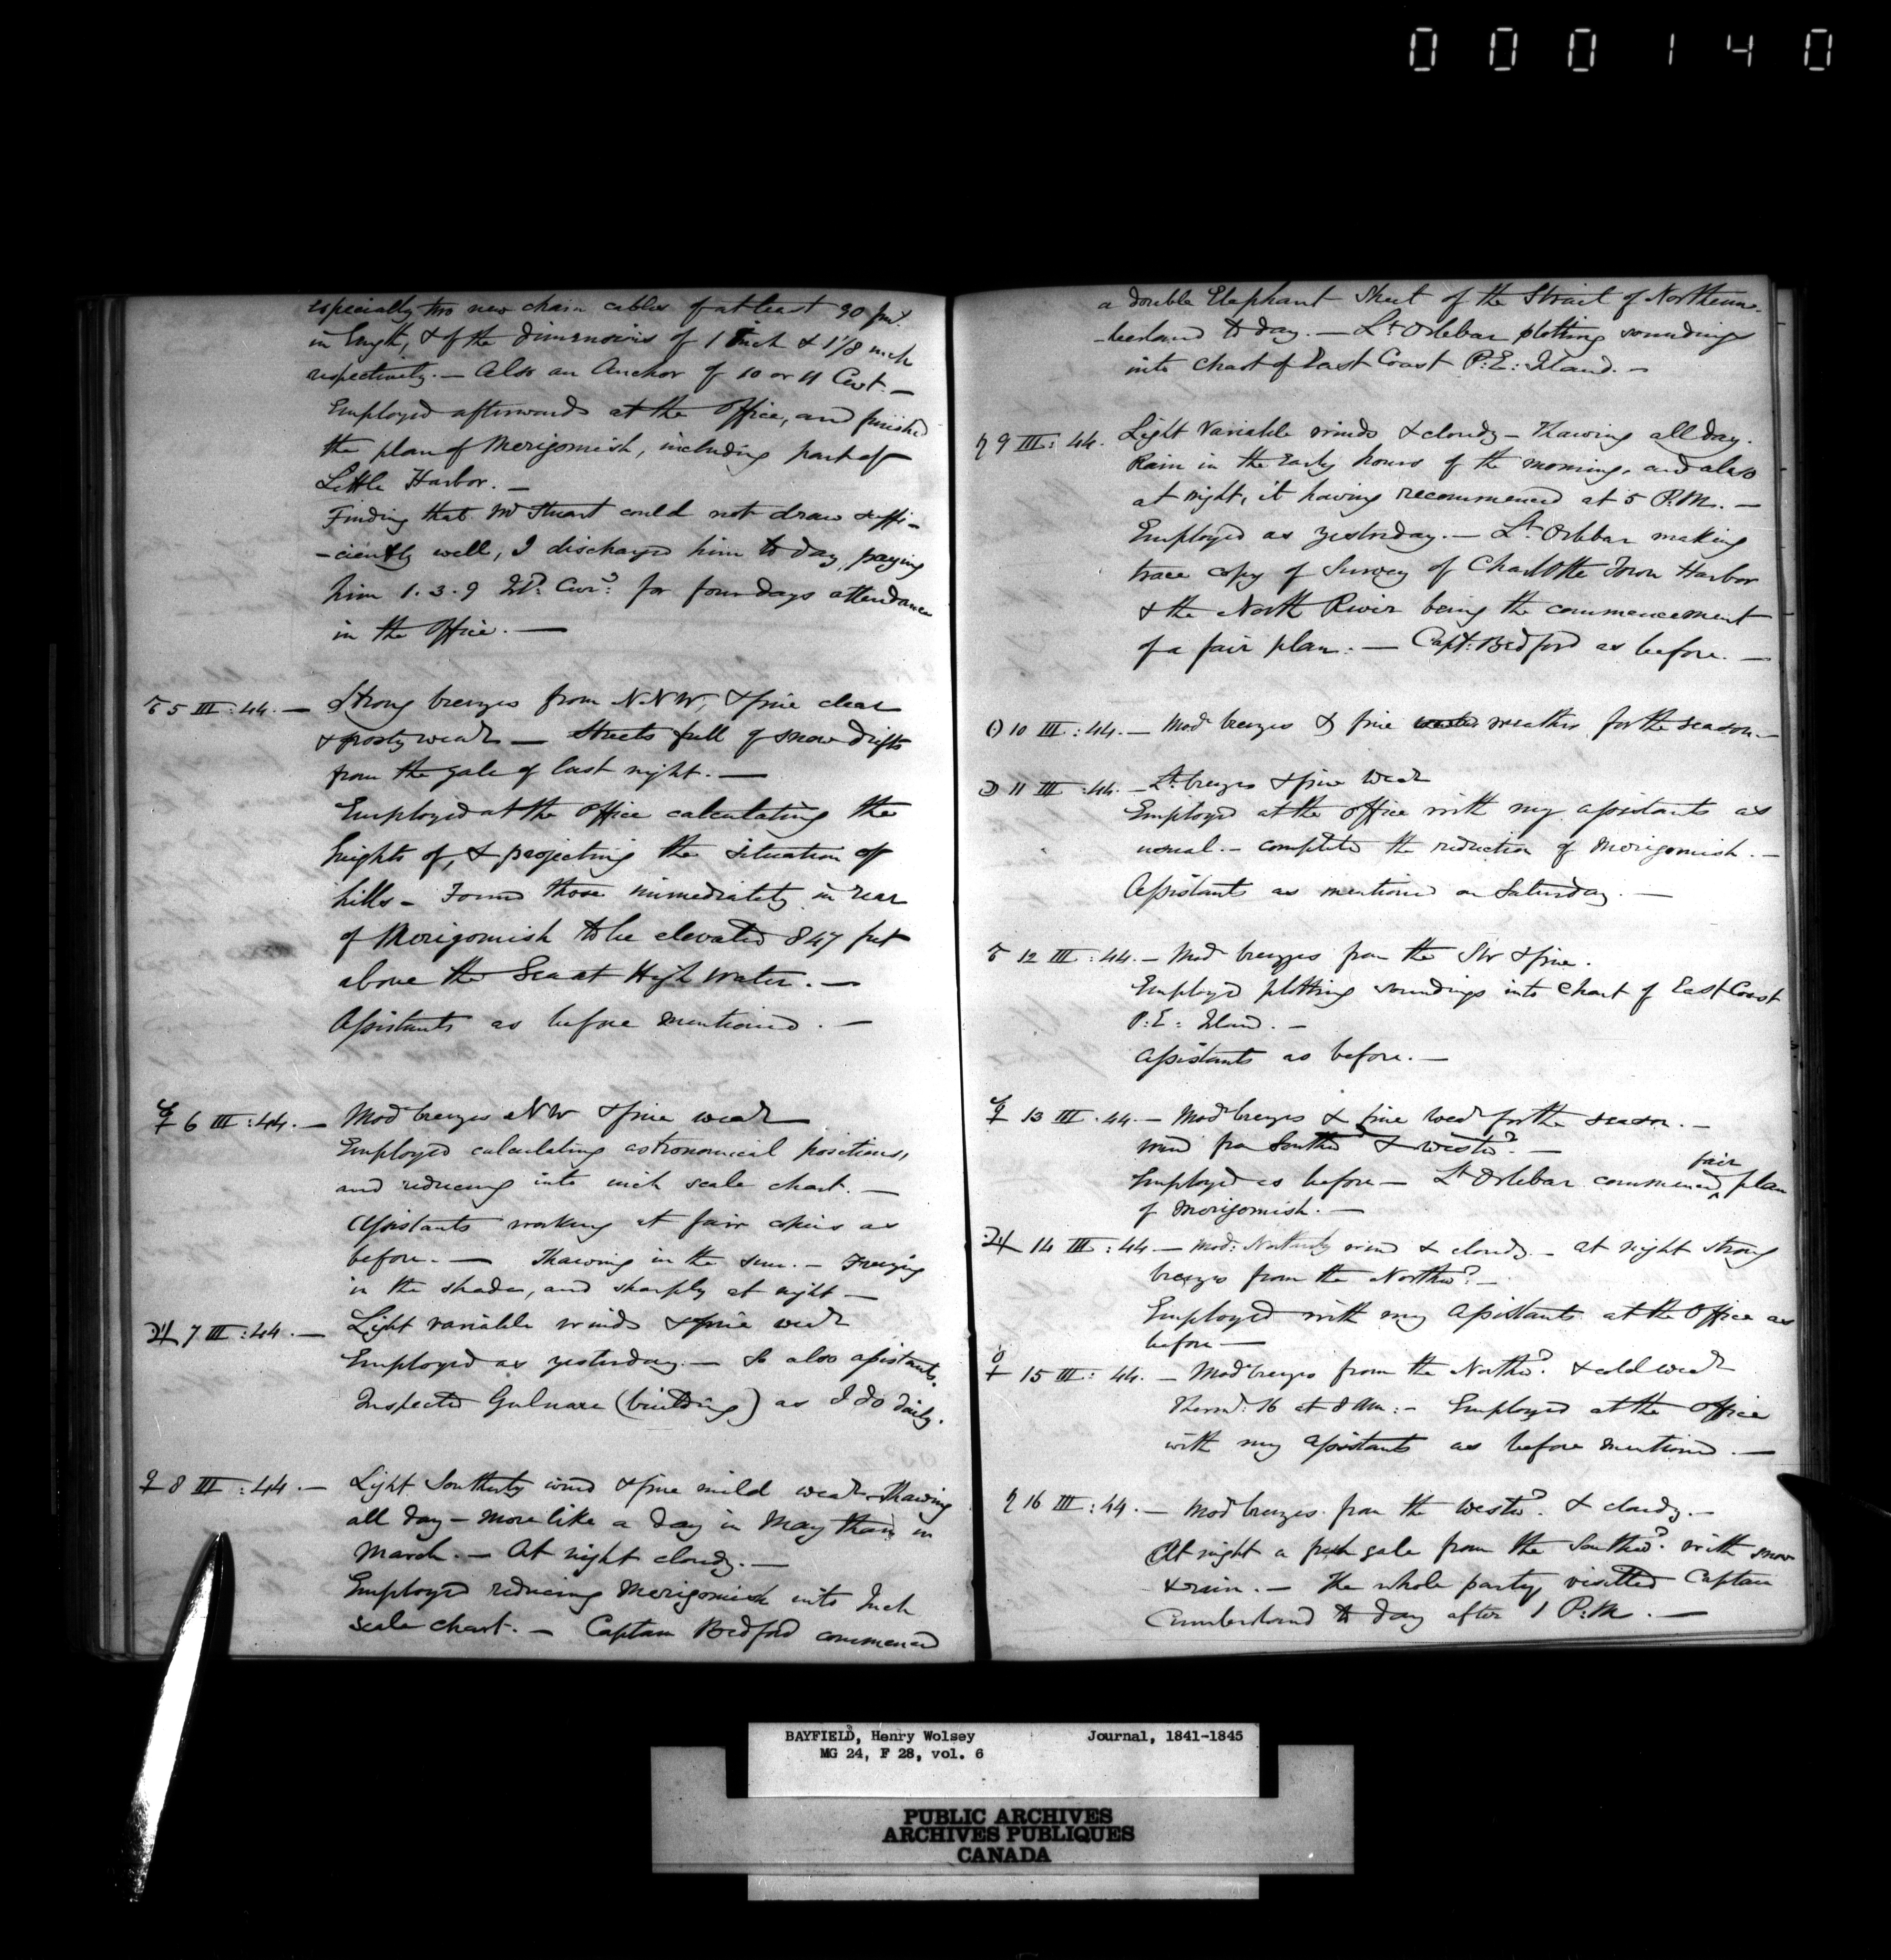 000140
especially two new chain cables of at least 90 fms.
in length, & of the dimensions of 1 Inch & 1 1/8 inch
respectively. — Also an Anchor of 10 or 11 Cwt. —
Employed afterwards at the Office, and finished
the plan of Merigomish, including part of
Little Harbor. —
Finding that Mr Stuart could not draw suffi-
-ciently well, I discharged him to day, paying
him 1.3.9 Curr: for four days attendance
in the Office. —
♂ 5 III : 44. — Strong breezes from NNW, & fine clear
& frosty weathr — Streets full of snow drifts
from the gale of last night. —
Employed at the Office calculating the
heights of, & projecting the situation of
hills — Found those immediately in rear
of Merigomish to be elevated 847 feet
above the Sea at High Water. —
Assistants as before mentioned. —
☿ 6 III : 44. — Modr breezes NW & fine weathr
Employed calculating astronomical positions,
and reducing into inch scale chart. —
Assistants working at fair copies as
before. — Thawing in the sun. — Freezing
in the shade, and sharply at night —
♃ 7 III : 44. — Light variable winds & fine weathr
Employed as yesterday — So also assistants.
Inspected Gulnare (building) as I do daily.
♀ 8 III : 44. — Light Southerly wind & fine mild weathr. Thawing
all day — more like a day in May than in
March. — At night cloudy. —
Employed reducing Merigomish into Inch
scale chart. — Captain Bedford commenced
a double Elephant Sheet of the Strait of Northum-
-berland to day. — Lt Orlebar plotting soundings
into chart of East Coast P: E: Island. —
♄ 9 III : 44. Light Variable winds & cloudy — Thawing all day.
Rain in the early hours of the morning, and also
at night, it having recommenced at 5 P.M. —
Employed as yesterday. — Lt Orlebar making
trace copy of Survey of Charlotte Town Harbor
& the North River being the commencement
of a fair plan. — Capt: Bedford as before. —
☉ 10 III : 44. — Modr breezes & fine weather for the season. —
☽ 11 III : 44. — Lt breezes & fine weathr
Employed at the Office with my assistants as
usual. — completed the reduction of Merigomish. —
Assistants as mentioned on Saturday. —
♂ 12 III : 44. — Modr breezes from the SW & fine.
Employed plotting soundings into chart of East Coast
P: E: Island. —
Assistants as before. —
☿ 13 III . 44. — Modr breezes & fine weathr for the season. —
wind from Southwd & Westwd. —
fair
Employed as before — Lt Orlebar commenced ^ plan
of Merigomish. —
♃ 14 III : 44 — Mod: Northerly wind & cloudy — at night strong
breezes from the Northwd. —
Employed with my Assistants at the Office as
before —
♀ 15 III : 44. — Modr breezes from the Northwd. & cold weathr
Thermr: 16 at 8 AM: — Employed at the Office
with my Assistants as before mentioned. —
♄ 16 III : 44. — Modr breezes from the Westwd. & cloudy. —
At night a fresh gale from the Southwd. with snow
& rain. — The whole party visited Captain
Cumberland to day after 1 P.M. —
BAYFIELD, Henry Wolsey Journal, 1841-1845
MG 24, F 28, vol. 6
PUBLIC ARCHIVES
ARCHIVES PUBLIQUES
CANADA